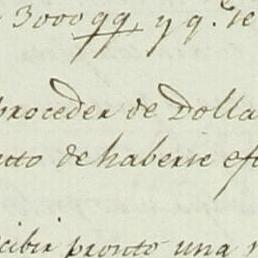 3000 qq, y q.e se
proceder de Dolla
cto de haberse efe
cibir pronto una